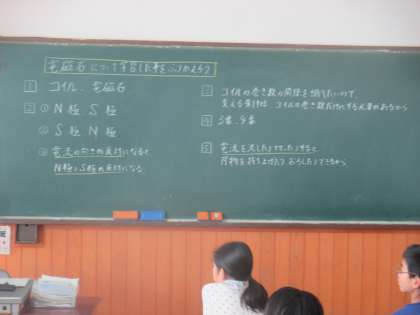 電磁石について学習した事をふりかえろう
1 コイル、電磁石
2 ① N極 S極
② N極 S極
③ 電流の向きが反対になると
N極とS極が反対になる
3 コイルの巻き数の関係を調べたいので、
変える条件は コイルの巻き数だけにする必要があるから
4 3番、4番
5 電流を流したり切ったりすると
荷物を持ち上げたり おろしたりできるから